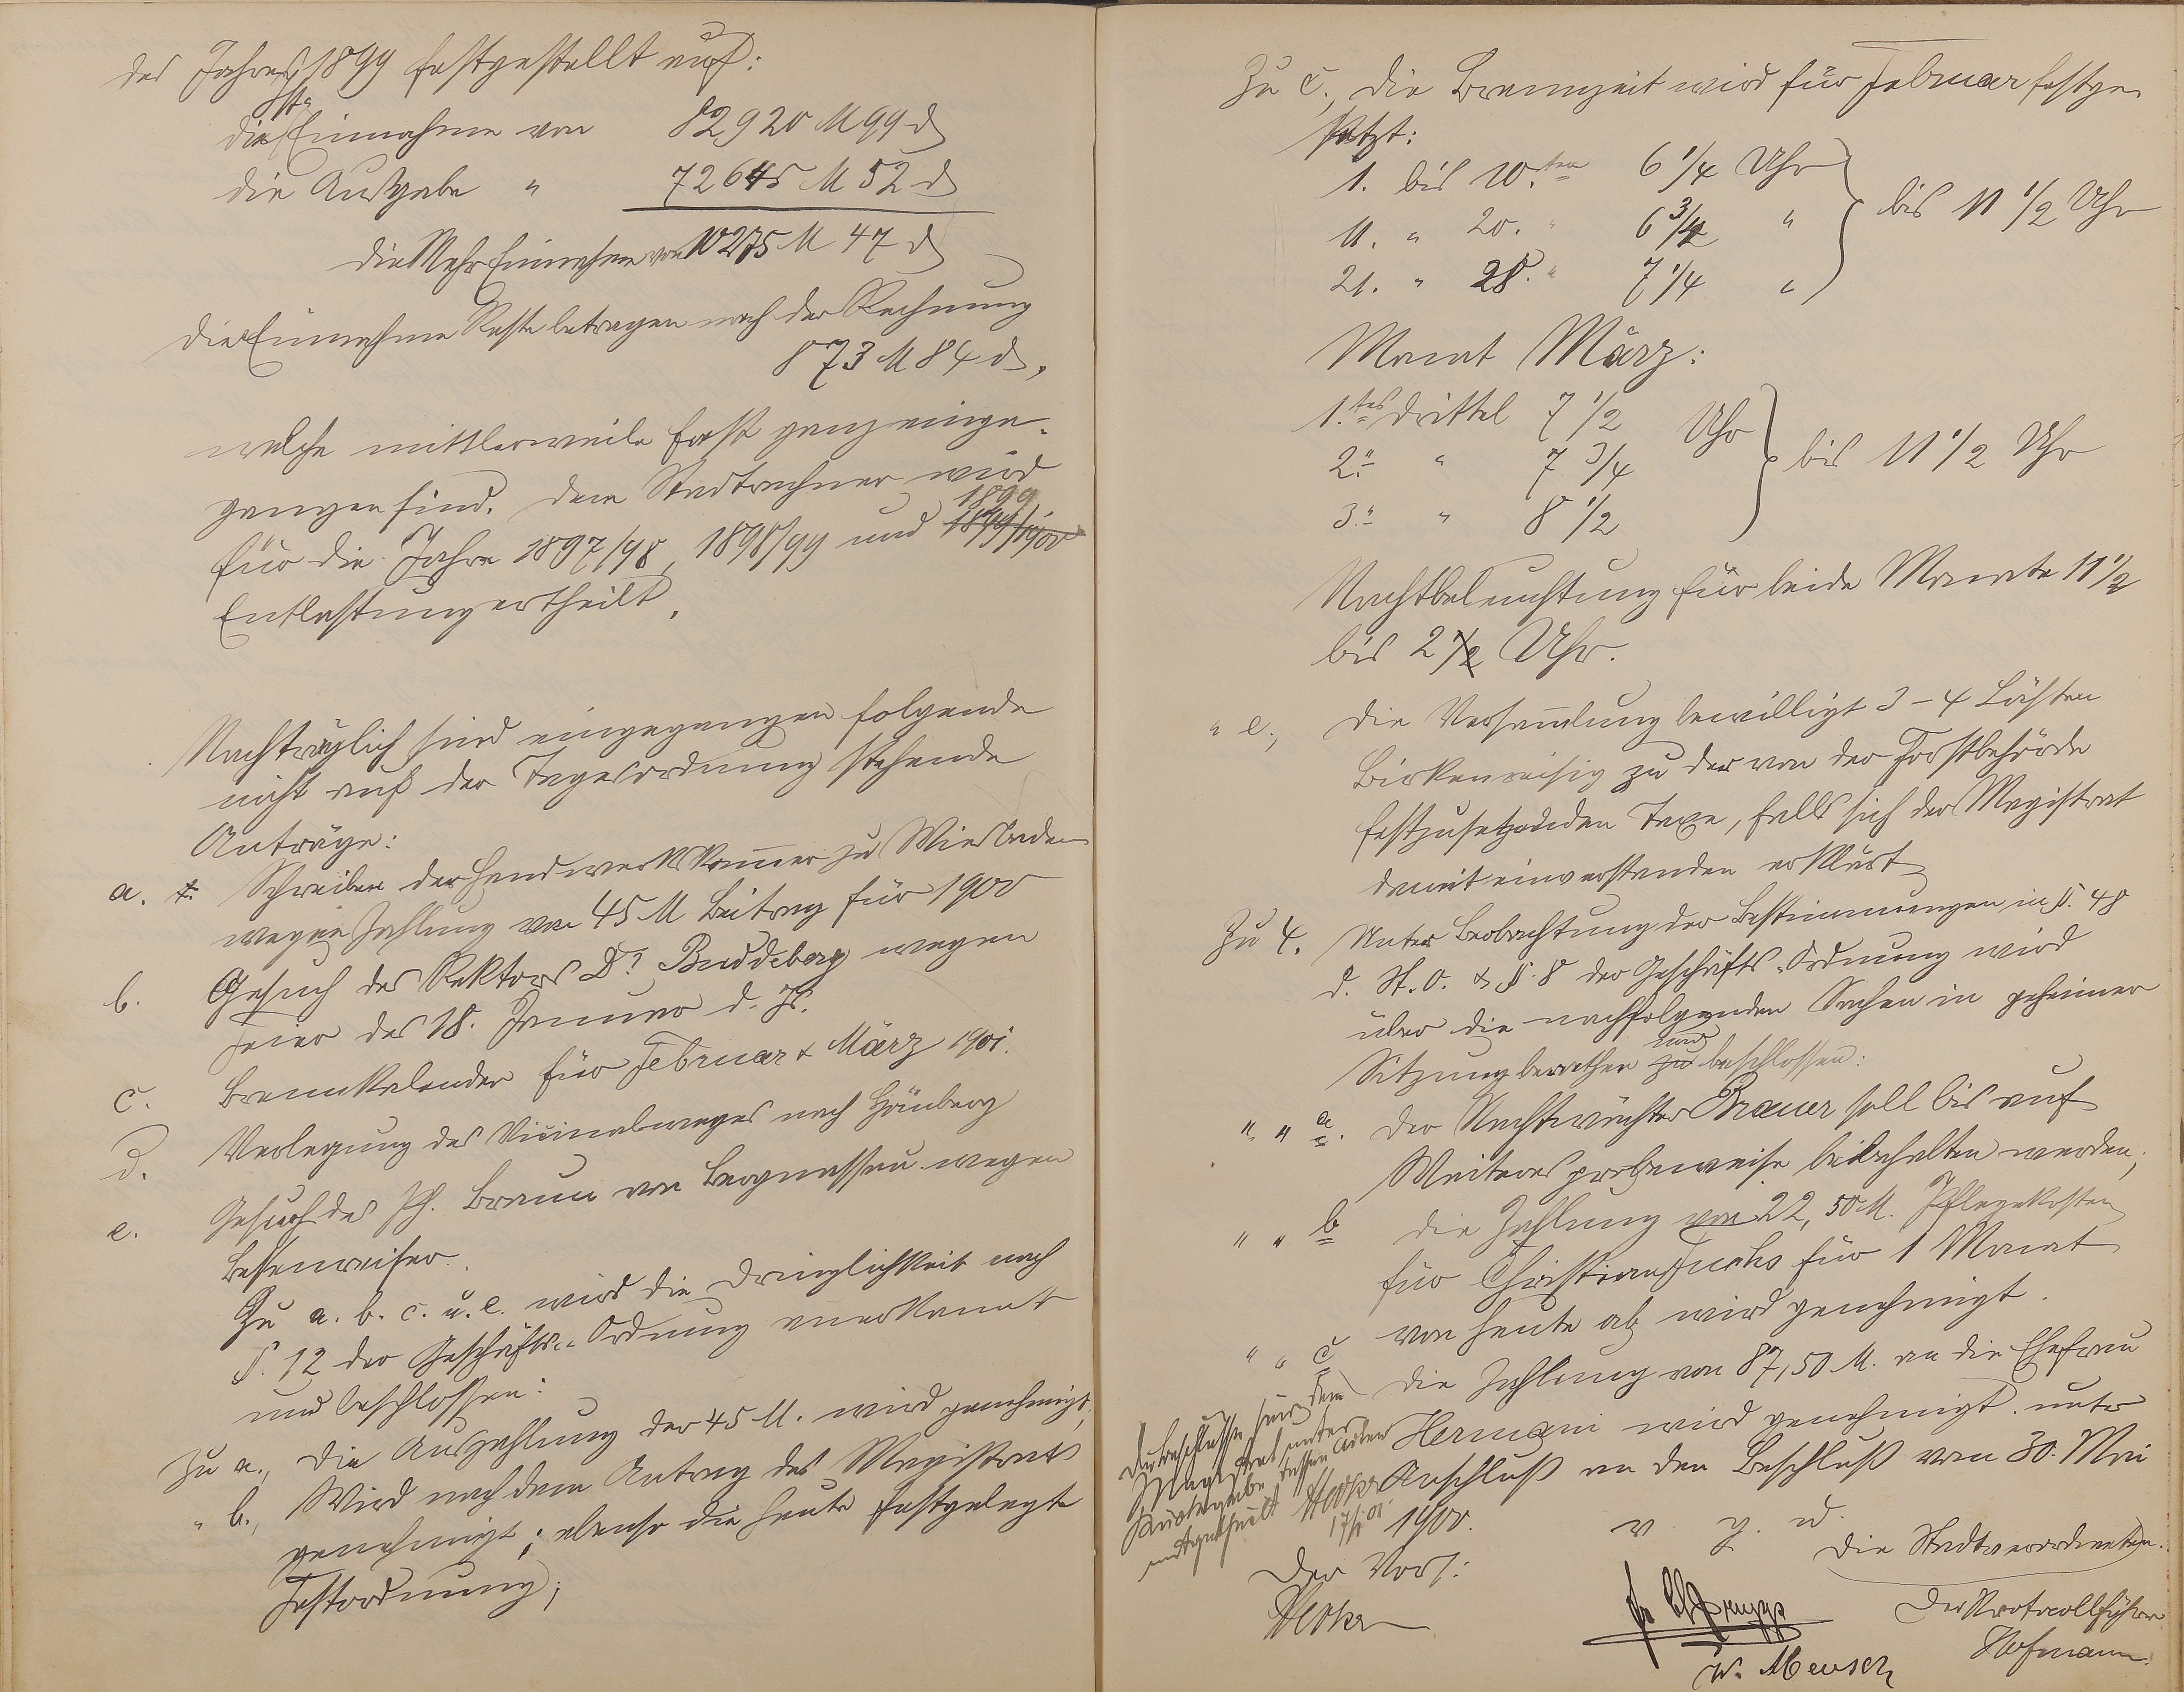 des Jahres 1899 festgestellt auf:
die Einnahme von 82920 M 99 d
die Ausgabe " 72645 M 52 d
die Mehr Einnahme von 10275 M 47 d
Die Einnahme Reste betragen nach der Rechnung
873 M 84 d,
welche mittlerweile fast ganz einge-
gangen sind. Dem Stadtrechner wird
für die Jahre 1897/98, 1898/99 und 1899
Entlastung ertheilt.
Nachträglich sind eingegangen folgende
nicht auf der Tagesordnung stehende
Anträge:
a. Schreiben der Handwerkskammer zu Wiesbaden
wegen Zahlung von 45 M Beitrag für 1900
b. Gesuch des Rektors Dr. Buddeberg wegen
Feier des 18. Januar d. Js.
c. Brennkalender für Februar & März 1901.
d. Verlegung des Vicinalweges nach Hömberg
e. Gesuch des Ph. Braun von Bergnassau wegen
Besenreiser.
Zu a. b. c. u. e. wird die Dringlichkeit nach
§. 12 der Geschäfts-Ordnung anerkannt
und beschlossen:
Zu a., Die Auszahlung der 45 M. wird genehmigt;
" b., Wird nach dem Antrag des Magistrats
genehmigt; ebenso die heute festgelegte
Festordnung;
Zu c., Die Brennzeit wird für Februar festge-
setzt:
1. bis 10.ten 6 1/4 Uhr
11. " 20. " 6 3/4 " bis 11 1/2 Uhr
21. " 28. " 7 1/4 "
Monat März:
1.tes Drittel 7 1/2
2." " 7 3/4 Uhr bis 11 1/2 Uhr
3." " 8 1/2
Nachtbeleuchtung für beide Monate 11 1/2
bis 2 Uhr.
" e., Die Versammlung bewilligt 3 - 4 Lasten
Birkenreisig zu der von der Forstbehörde
festzusetzenden Taxe, falls sich der Magistrat
damit einverstanden erklärt
Zu 4. Unter Beobachtung der Bestimmungen in §. 48
d. St. O. & §. 8 der Geschäfts-Ordnung wird
über die nachfolgenden Sachen in geheimer
Sitzung berathen und beschlossen:
" " a. Der Nachtwächter Brauer soll bis auf
Weiteres probeweise beibehalten werden;
" " b Die Zahlung von 22,50 M. Pflegekosten
für Christian Fuchs für 1 Monat
von heute ab wird genehmigt.
" " c Die Zahlung von 87,50 M. an die Ehefrau
Hermani wird genehmigt unter
Anschluß an den Beschluß vom 30. Mai
1900.
Die Beschlüsse sind dem
Magistrat unter
Rückgabe dessen Akten
mitgetheilt
17/1 01
v. g. u.
Der Vors:
Die Stadtverordneten.
Der Protocollführer
W. Meusch
Hofmann.